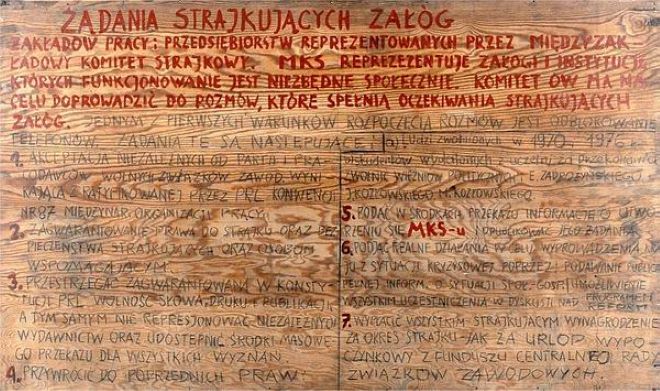 ŻĄDANIA STRAJKUJĄCYCH ZAŁÓG
ZAKŁADÓW PRACY I PRZEDSIĘBIORSTW REPREZENTOWANYCH PRZEZ MIĘDZYZAK-
ŁADOWY KOMITET STRAJKOWY. MKS REPREZENTUJE ZAŁOGI I INSTYTUCJE,
KTÓRYCH FUNKCJONOWANIE JEST NIEZBĘDNE SPOŁECZNIE. KOMITET ÓW MA NA
CELU DOPROWADZIĆ DO ROZMÓW, KTÓRE SPEŁNIĄ OCZEKIWANIA STRAJKUJĄCYCH
ZAŁÓG. JEDNYM Z PIERWSZYCH WARUNKÓW ROZPOCZĘCIA ROZMÓW JEST ODBLOKOWANIE
TELEFONÓW. ŻĄDANIA TE SĄ NASTĘPUJĄCE:
1. AKCEPTACJA NIEZALEŻNYCH OD PARTII I PRA-
CODAWCÓW WOLNYCH ZWIĄZKÓW ZAWOD. WYNI-
KAJĄCA Z RATYFIKOWANEJ PRZEZ PRL KONWENCJI
NR 87 MIĘDZYNAR. ORGANIZACJI PRACY.
2. ZAGWARANTOWANIE PRAWA DO STRAJKU ORAZ BEZ-
PIECZEŃSTWA STRAJKUJĄCYCH ORAZ OSOBOM
WSPOMAGAJĄCYM.
3. PRZESTRZEGAĆ ZAGWARANTOWANĄ W KONSTY-
TUCJI PRL WOLNOŚĆ SŁOWA, DRUKU I PUBLIKACJI,
A TYM SAMYM NIE REPRESJONOWAĆ NIEZALEŻNYCH
WYDAWNICTW ORAZ UDOSTĘPNIĆ ŚRODKI MASOWE-
GO PRZEKAZU DLA WSZYSTKICH WYZNAŃ.
4. PRZYWRÓCIĆ DO POPRZEDNICH PRAW:
a) LUDZI ZWOLNIONYCH W 1970 I 1976 R.
STUDENTÓW WYDALONYCH Z UCZELNI ZA PRZEKONANIA
ZWOLNIĆ WIĘŹNIÓW POLITYCZNYCH E. ZADROŻYŃSKIEGO
J. KOZŁOWSKIEGO M. KOZŁOWSKIEGO
5. PODAĆ W ŚRODKACH PRZEKAZU INFORMACJĘ O UTWO-
RZENIU SIĘ MKS-u I OPUBLIKOWAĆ JEGO ŻĄDANIA
6. PODJĄĆ REALNE DZIAŁANIA W CELU WYPROWADZENIA
Z SYTUACJI KRYZYSOWEJ POPRZEZ: PODAWANIE PUBLICZ.
PEŁNEJ INFORM. O SYTUACJI SPOŁ-GOSP. UMOŻLIWIENIE
WSZYSTKIM UCZESTNICZENIA W DYSKUSJI NAD PROGRAMEM
REFORM
7. WYPŁACIĆ WSZYSTKIM STRAJKUJĄCYM WYNAGRODZENIE
ZA OKRES STRAJKU JAK ZA URLOP WYPO-
CZYNKOWY Z FUNDUSZU CENTRALNEJ RADY
ZWIĄZKÓW ZAWODOWYCH.